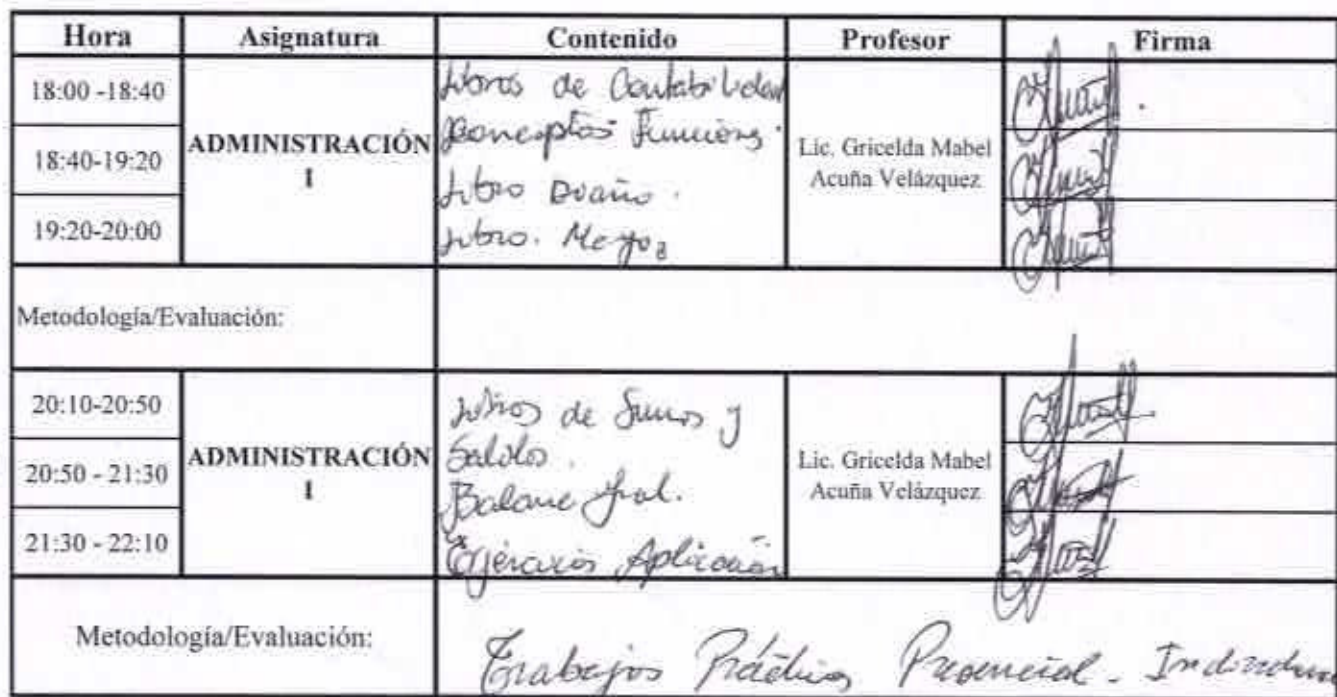 Hora Asignatura Contenido Profesor Firma
18:00 -18:40
18:40-19:20
19:20-20:00
ADMINISTRACIÓN
I
Libros de Contabilidad
Conceptos Funciones.
Libro Diario.
Libro. Mayor
Lic. Gricelda Mabel
Acuña Velázquez
Metodología/Evaluación:
20:10-20:50
20:50 - 21:30
21:30 - 22:10
ADMINISTRACIÓN
I
Libros de Sumas y
Saldos.
Balance Gral.
Ejercicios Aplicación
Lic. Gricelda Mabel
Acuña Velázquez
Metodología/Evaluación:
Trabajos Prácticos Presencial - Individual